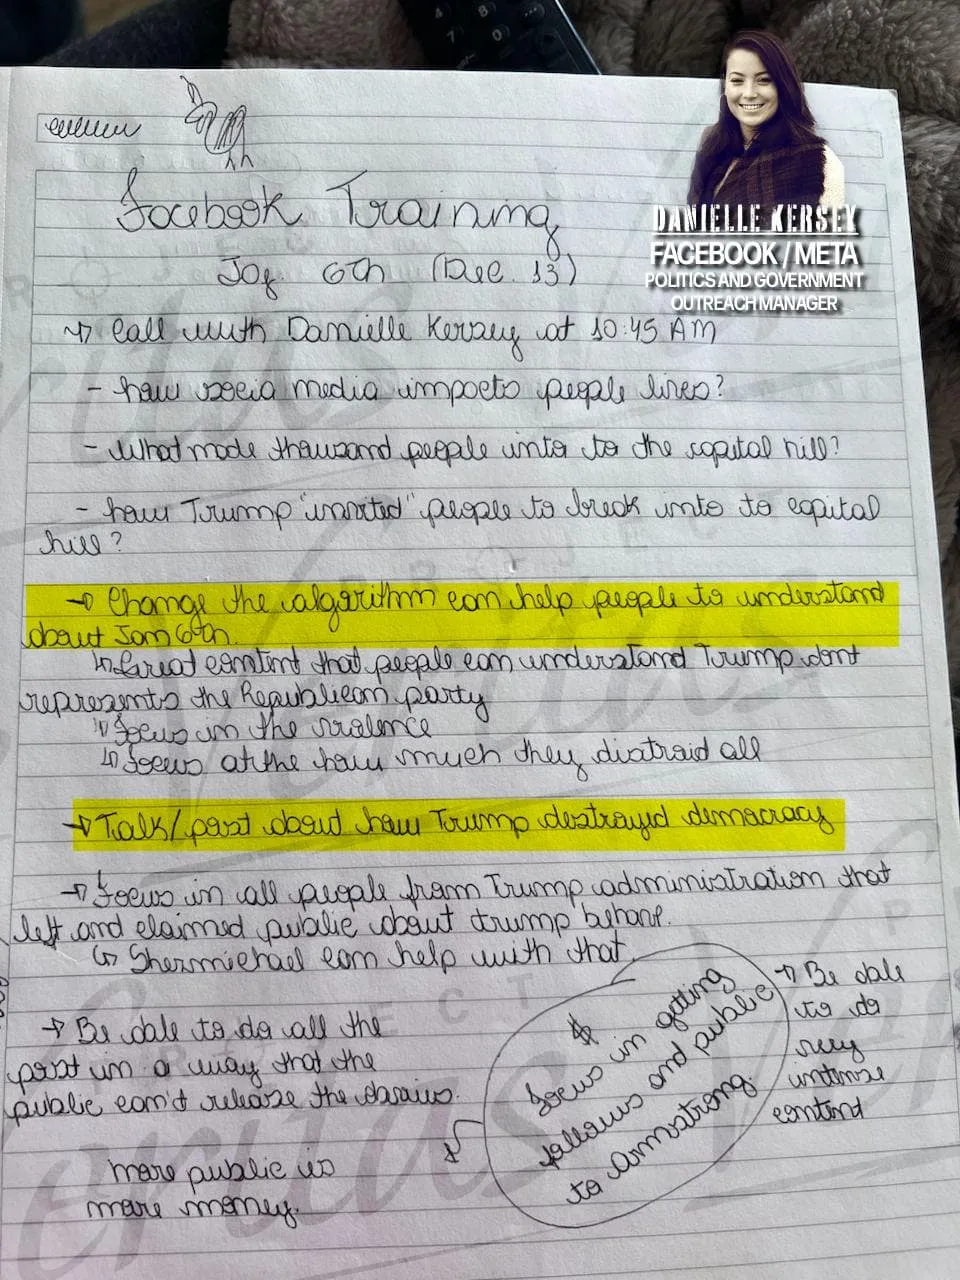 DANIELLE KERSEY
FACEBOOK / META
POLITICS AND GOVERNMENT
OUTREACH MANAGER
Facebook Training
6th (Dec. 13)
Call with Danielle Kersey at 10:45 AM
- how socia media impacts people lives?
- What made thousand people into to the capital hill?
- how Trump "invited" people to break into to capital
hill?
→ Change the algorithm can help people to understand
about Jan 6th.
↳ Great content that people can understand Trump dont
represents the Republican party
↳ Focus in the violence
↳ Focus at the how much they distraid all
→ Talk/post about how Trump destroyed democracy
→ Focus in all people from Trump administration that
left and claimed public about trump behave.
↳ Shermichael can help with that
→ Be able to do all the
post in a way that the
public can't release the
more public is
more money.
$
focus in getting
follows and public
to armstrong.
→ Be able
to do
very
intense
content
PROJECT
Veritas